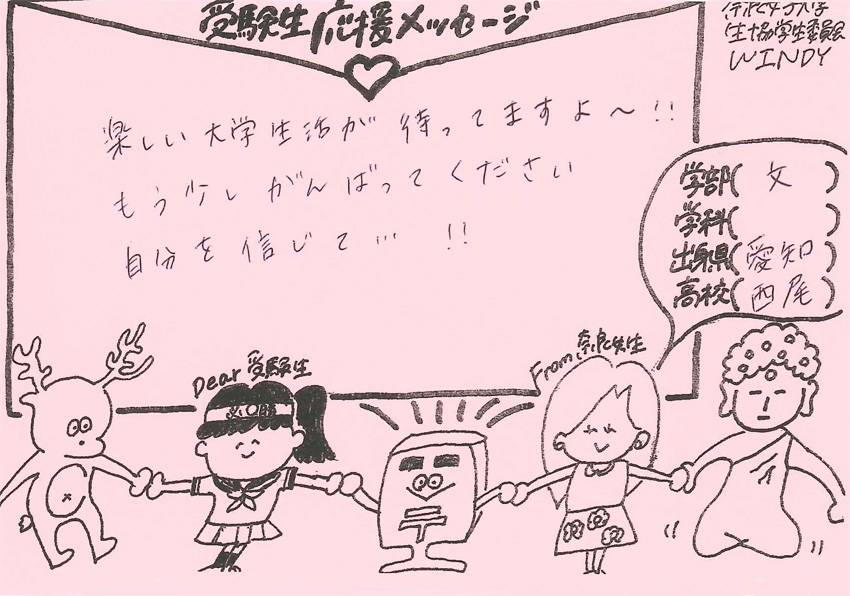 受験生応援メッセージ
奈良女子大学
生協学生委員会
WINDY
楽しい大学生活が待ってますよ〜!!
もう少しがんばってください
自分を信じて… !!
学部( 文 )
学科( )
出身県( 愛知 )
高校( 西尾 )
Dear 受験生
From 奈良女生
必勝
〒